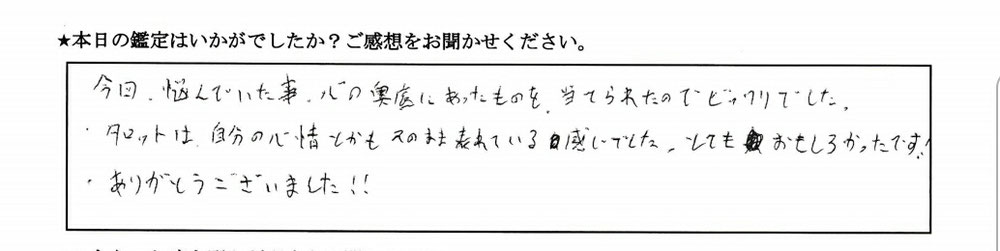 ★本日の鑑定はいかがでしたか？ご感想をお聞かせください。
今回、悩んでいた事、心の奥底にあったものを、当てられたのでビックリでした。
・タロットは、自分の心情とかもそのまま表れている感じでした。とてもおもしろかったです！
・ありがとうございました！！